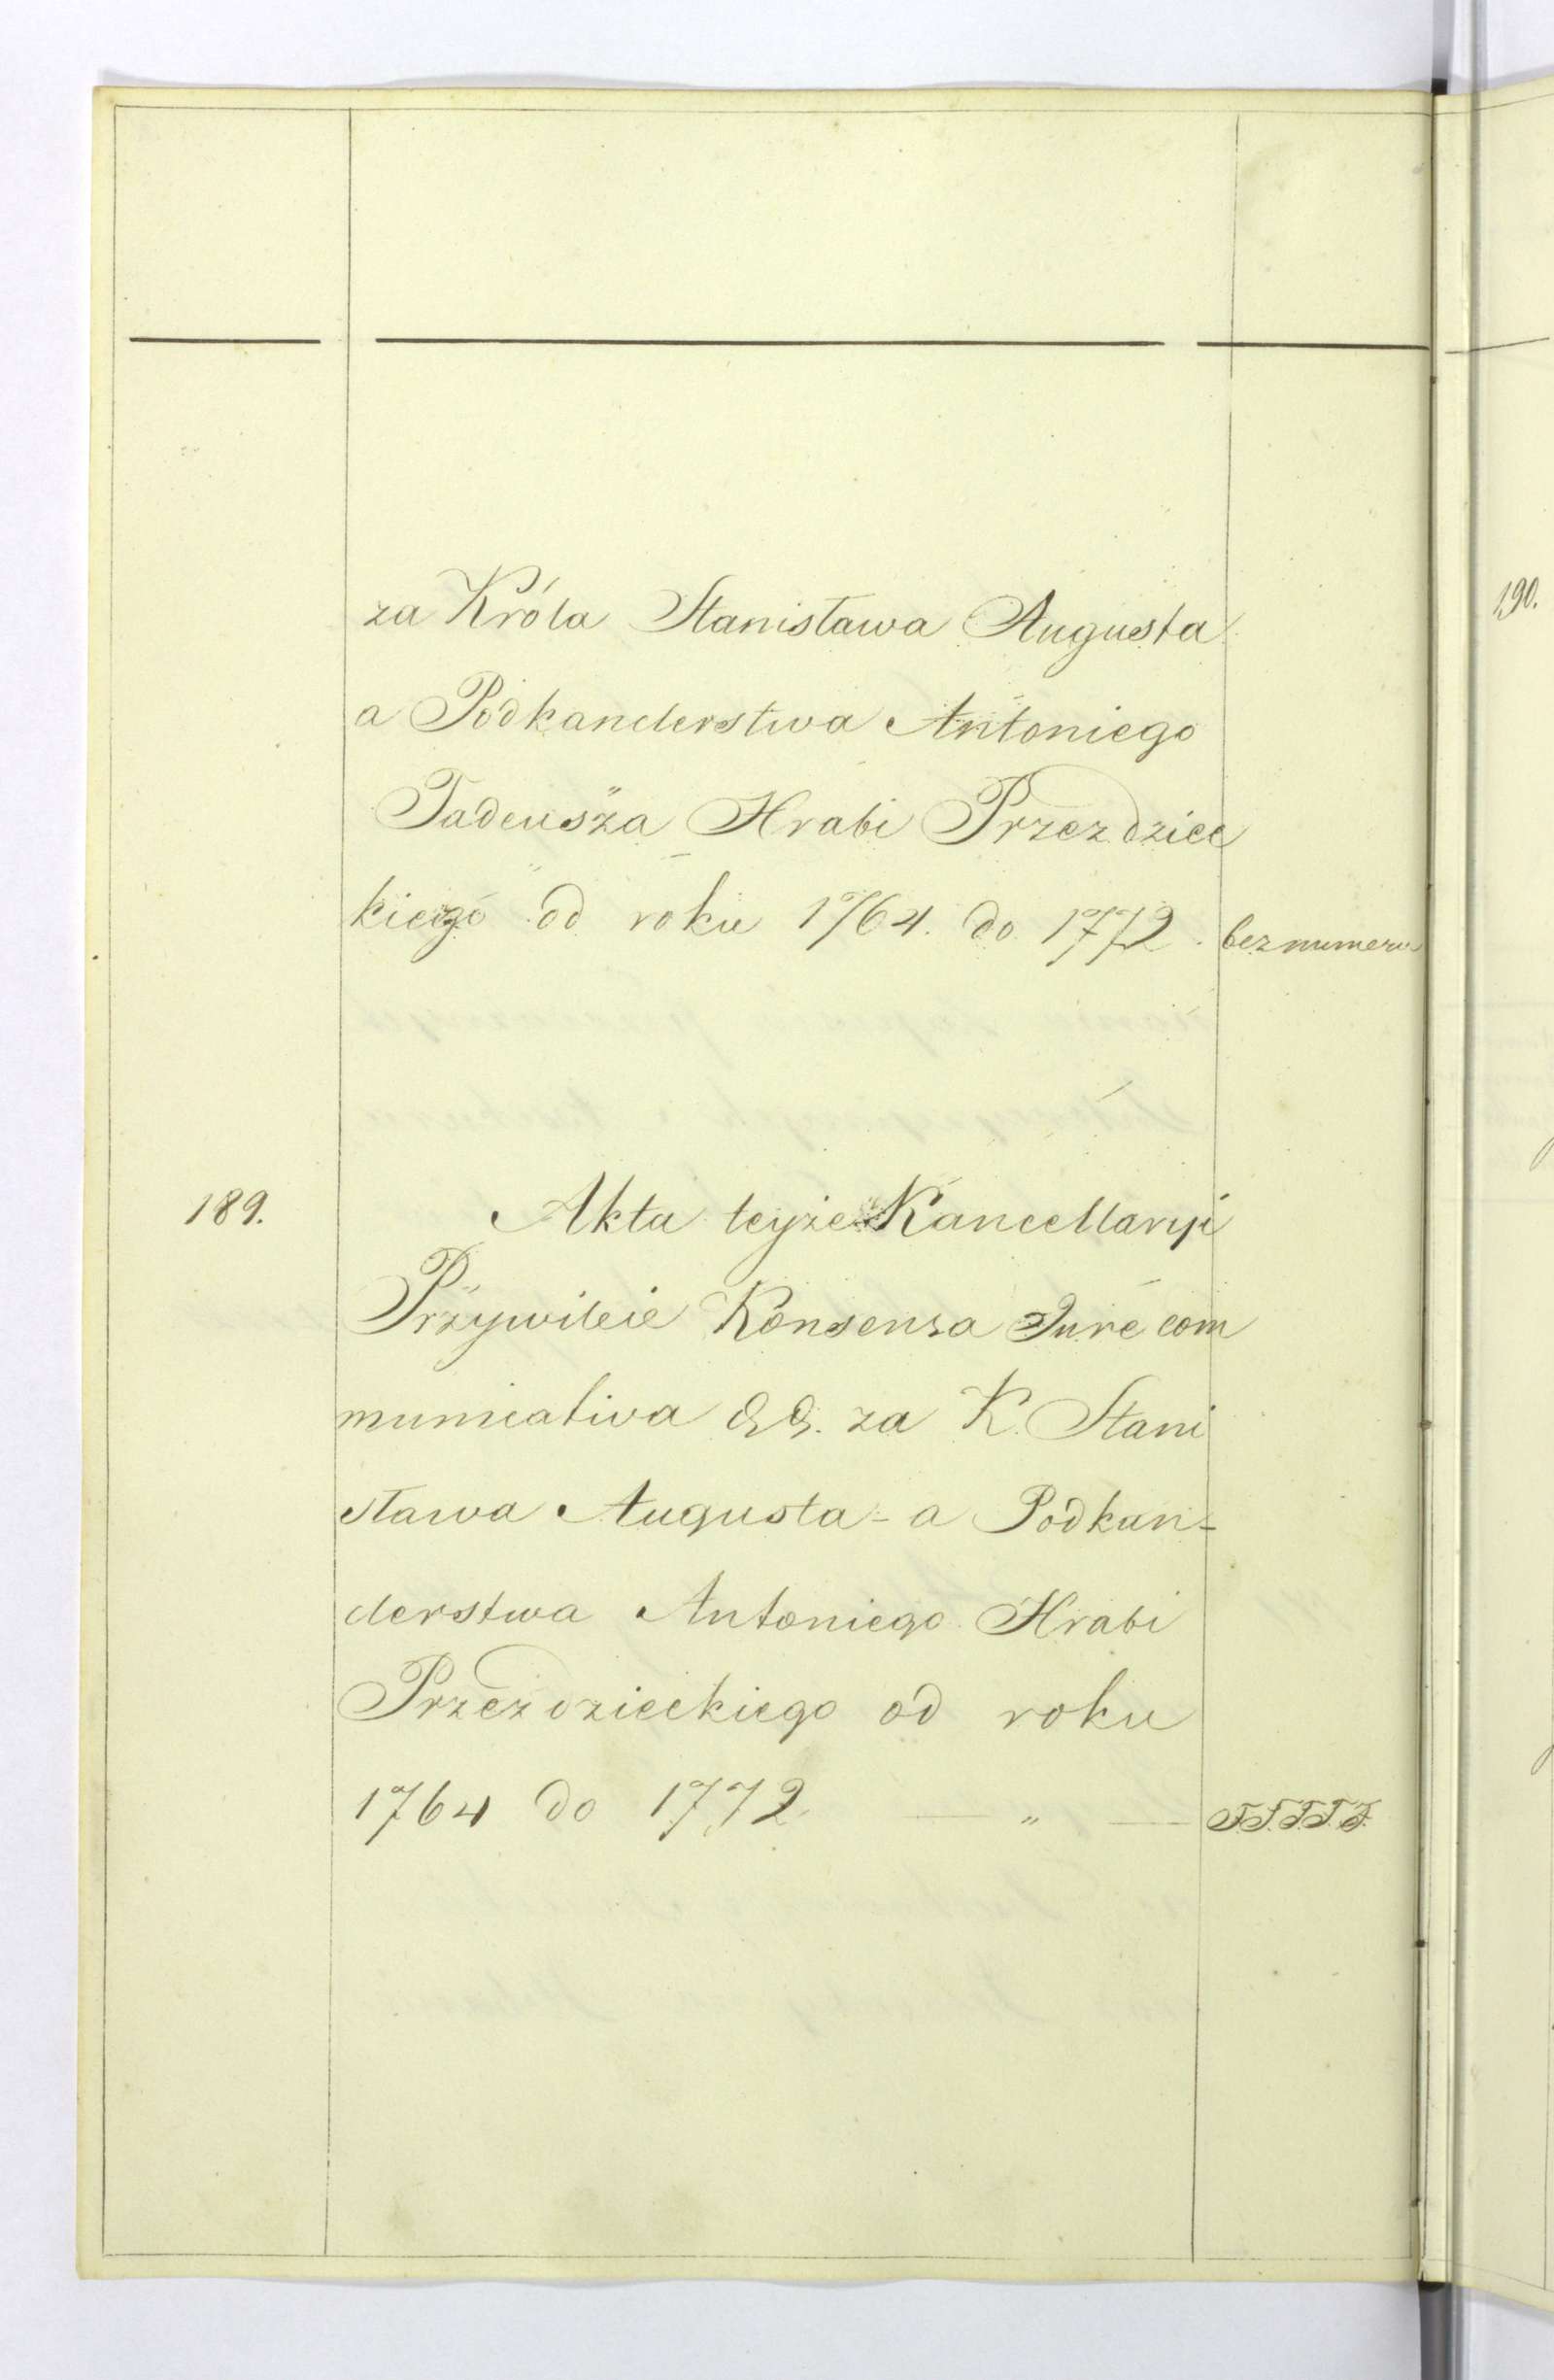 za Króla Stanisława Augusta
a Podkanclerstwa Antoniego
Tadeusza Hrabi Przezdziec
kiego od roku 1764. do 1772. bez numeru
189. Akta teyże Kancellaryi
Przywileie Konsensa Jure com
municativa &&. za K. Stani
sława Augusta - a Podkan-
clerstwa Antoniego Hrabi
Przezdzieckiego od roku
1764 do 1772 — „ — F.F.F.F.F.
190.